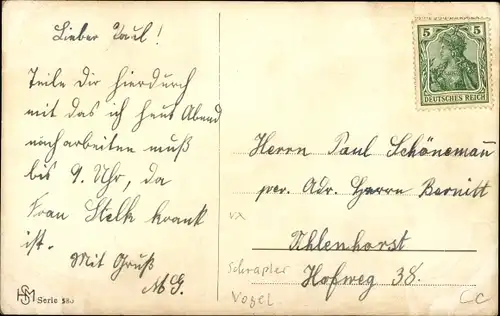 Lieber Paul!
Teile Dir hierdurch
mit das ich heut Abend
nacharbeiten muß
bis 9. Uhr, da
Frau Stelk krank
ist.
Mit Gruß
M.G.
HSM Serie 580
5 5
DEUTSCHES REICH
Herrn Paul Schönemann
per. Adr. Herrn Bernitt
Uhlenhorst
Hofweg 38.
Schrapler
Vogel
CC